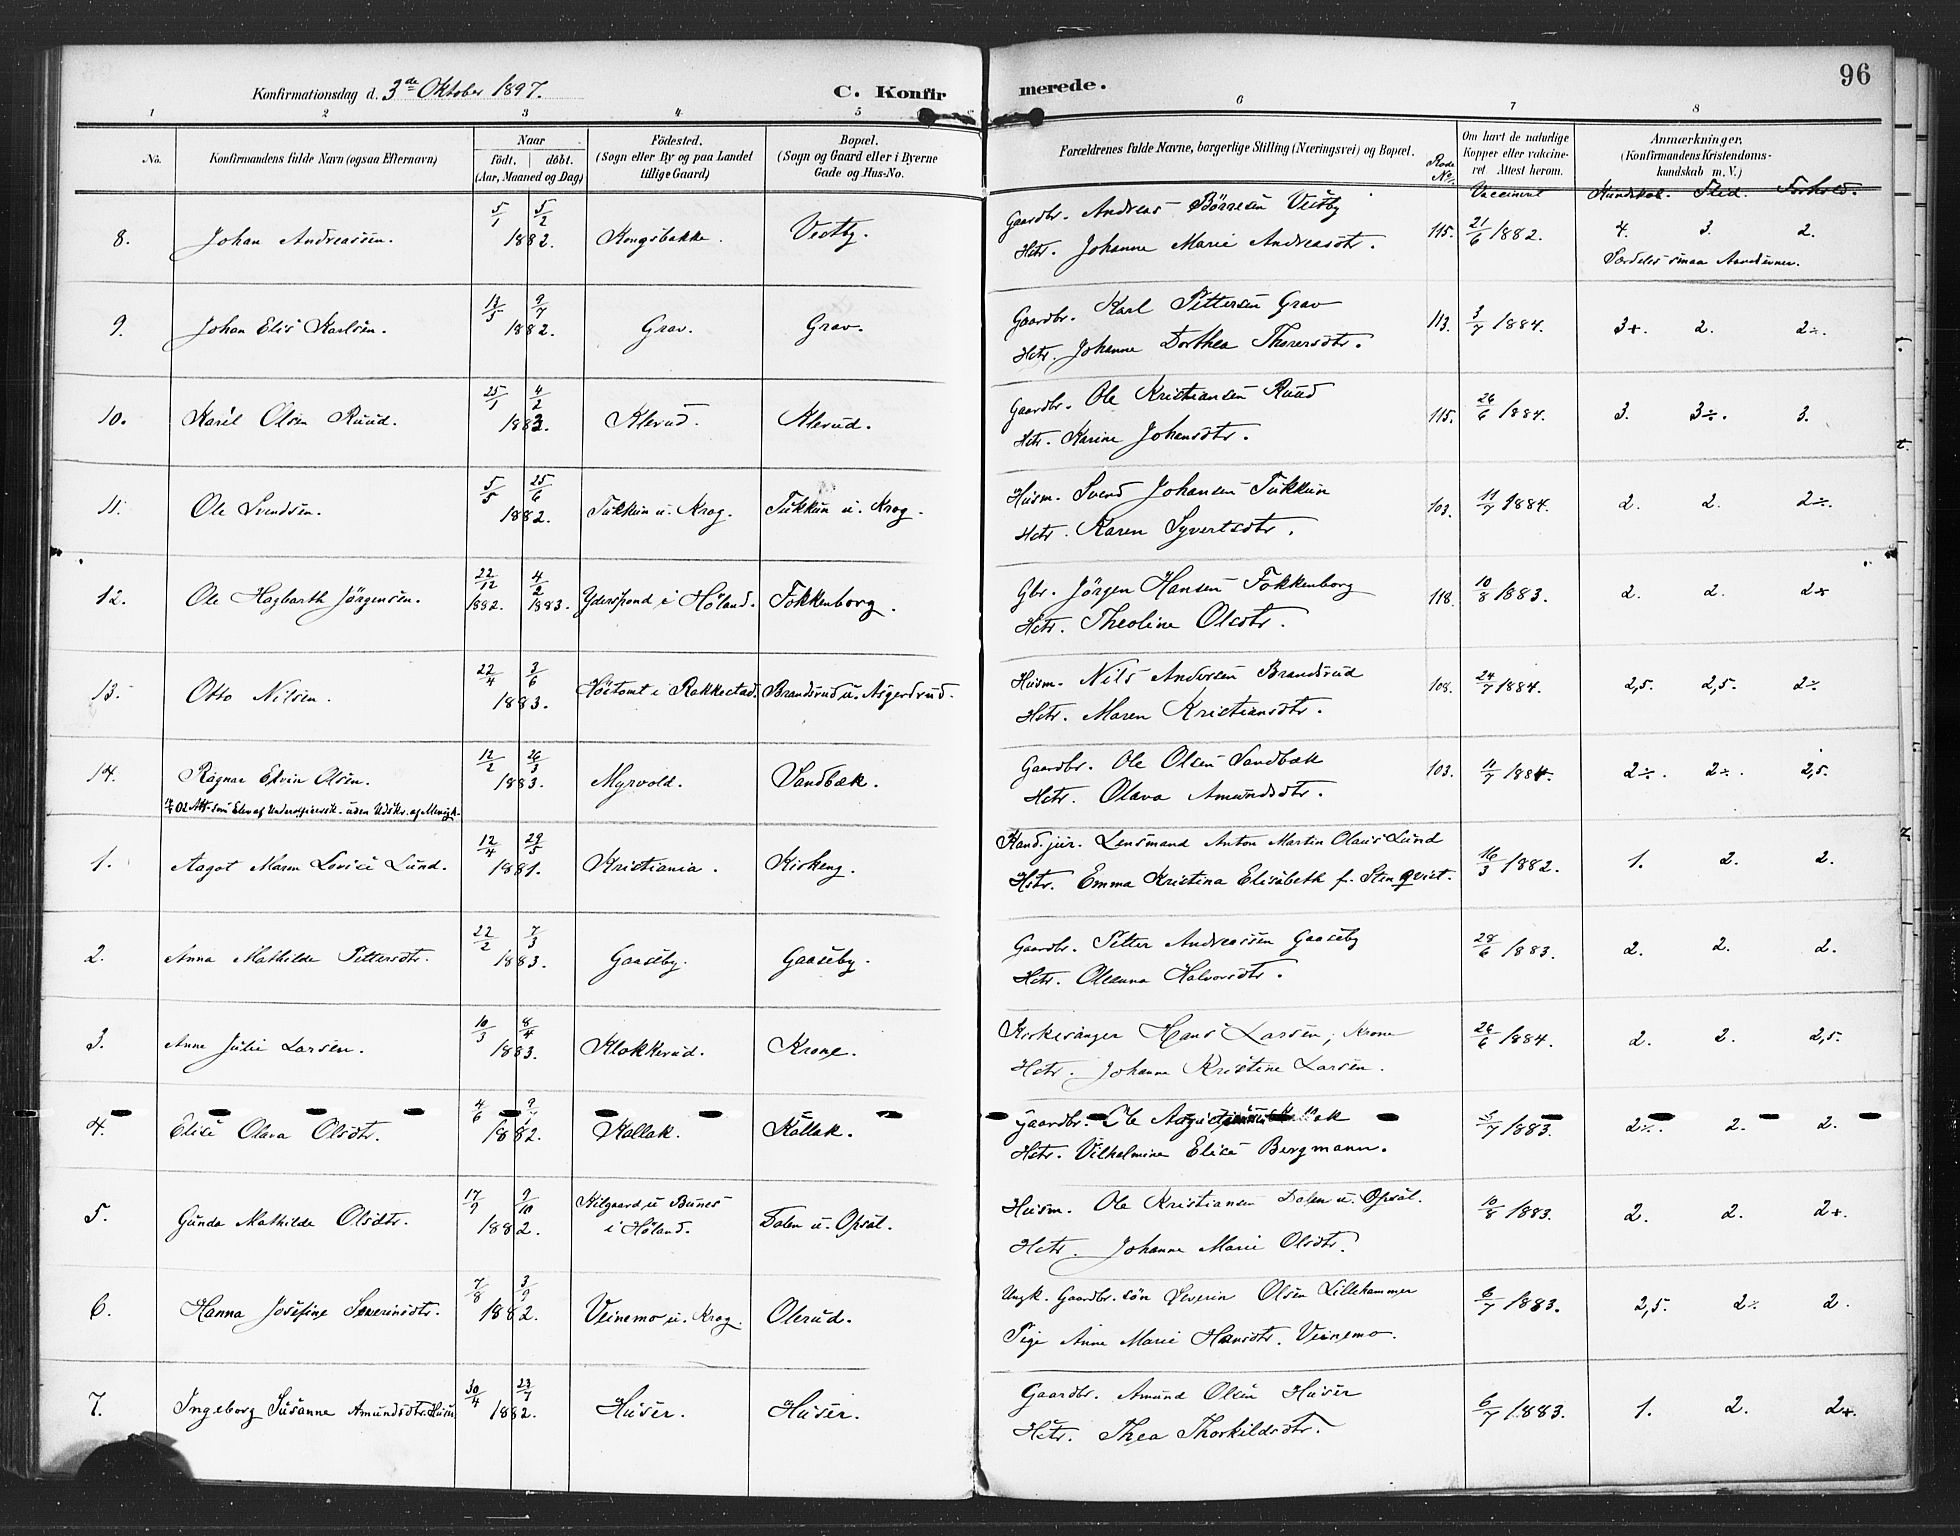 Konfirmationsdag d. 3de Oktober 1897. C. Konfirmerede. 96
1 2 3 4 5 6 7 8
No. Konfirmandens fulde Navn (ogsaa Efternavn) Naar født, døbt. (Aar, Maaned og Dag) Fødested. (Sogn eller By og paa Landet tillige Gaard) Bopæl. (Sogn og Gaard eller i Byerne Gade og Hus-No. Forældrenes fulde Navne, borgerlige Stilling (Næringsvei) og Bopæl. Rode No. Om havt de naturlige Kopper eller vakcineret Attest herom. Anmærkninger, (Konfirmandens Kristendomskundskab m. V.)
Vaccineret Kundskab. Flid. Forhold.
8. Johan Andreassen. 5/1 5/2 1882. Kongsbakke. Vestby. Gaardbr. Andreas Børresen Vestby 115. 21/6 1882. 4. 3. 2.
Hstr. Johanne Marie Andreasdtr. Særdeles smaa Aandsevner.
9. Johan Elis Karlsen. 13/5 9/7 1882. Grav. Grav. Gaardbr. Karl Pettersen Grav 113. 3/7 1884. 3+. 2. 2÷.
Hstr. Johanne Dorthea Thorersdtr.
10. Karel Olsen Ruud. 25/1 4/2 1883. Klerud. Klerud. Gaardbr. Ole Kristiansen Ruud 115. 26/6 1884. 3. 3÷. 3.
Hstr. Karine Johansdtr.
11. Ole Svendsen. 5/5 25/6 1882. Tukkun u. Krog. Tukkun u. Krog. Husm. Svend Johansen Tukkun 103. 11/7 1884. 2. 2. 2÷.
Hstr. Karen Syvertsdtr.
12. Ole Hagbarth Jørgensen. 22/12 1882. 4/2 1883. Ydersbond i Høland. Fokkenborg. Gbr. Jørgen Hansen Fokkenborg 118. 10/8 1883. 2. 2. 2+
Hstr. Theoline Olsdtr.
13. Otto Nilsen. 22/4 3/6 1883. Høitomt i Rakkestad. Brandsrud u. Asgerdrud. Husm. Nils Andersen Brandsrud 108. 24/7 1884. 2,5. 2,5. 2÷
Hstr. Maren Kristiansdtr.
14. Ragnar Edvin Olsen. 12/2 26/3 1883. Myrvold. Sandbæk. Gaardbr. Ole Olsen Sandbæk 103. 11/7 1884. 2÷. 2÷. 2,5.
02 Att. som Elev af Underofficersk. uden Udskr. af Menigh. Hstr. Olava Amundsdtr.
1. Aagot Maren Lovise Lund. 12/4 29/5 1881. Kristiania. Kirkeng. Kand. jur. Lensmand Anton Martin Olaus Lund 16/3 1882. 1. 2. 2.
Hstr. Emma Kristina Elisabeth f. Stenqvist.
2. Anna Mathilde Pettersdtr. 22/2 7/3 1883. Gaaseby. Gaaseby. Gaardbr. Petter Andreassen Gaaseby 28/6 1883. 2. 2. 2.
Hstr. Oleanna Halvorsdtr.
3. Anne Julie Larsen. 10/3 8/4 1883. Klokkerud. Krone. Kirkesanger Hans Larsen, Krone 26/6 1884. 2. 2. 2,5.
Hstr. Johanne Kristine Larsen.
4. Elise Olava Olsdtr. 4/6 1882. Kollak. Kollak. Gaardbr. Ole 7 1883. 2÷. 2. 2.
Hstr. Vilhelmine Elise Bergmann.
5. Gunda Mathilde Olsdtr. 17/9 9/10 1882. Kilgaard u Bunes i Høland. Dalen u. Opsal. Husm. Ole Kristiansen Dalen u. Opsal. 10/8 1883. 2. 2. 2+.
Hstr. Johanne Marie Olsdtr.
6. Hanna Josefine Severinsdtr. 7/8 3/9 1882. Veinemo u. Krog. Olerud. Ungk. Gaardbr. søn Severin Olsen Lillehammer 6/7 1883. 2,5. 2÷ 2.
Pige Anne Marie Hansdtr. Veinemo.
7. Ingeborg Susanne Amundsdtr. Huser 30/4 23/7 1882. Huser. Huser. Gaardbr. Amund Olsen Huser 6/7 1883. 1. 2. 2+.
Hstr. Thea Thorkildsdtr.